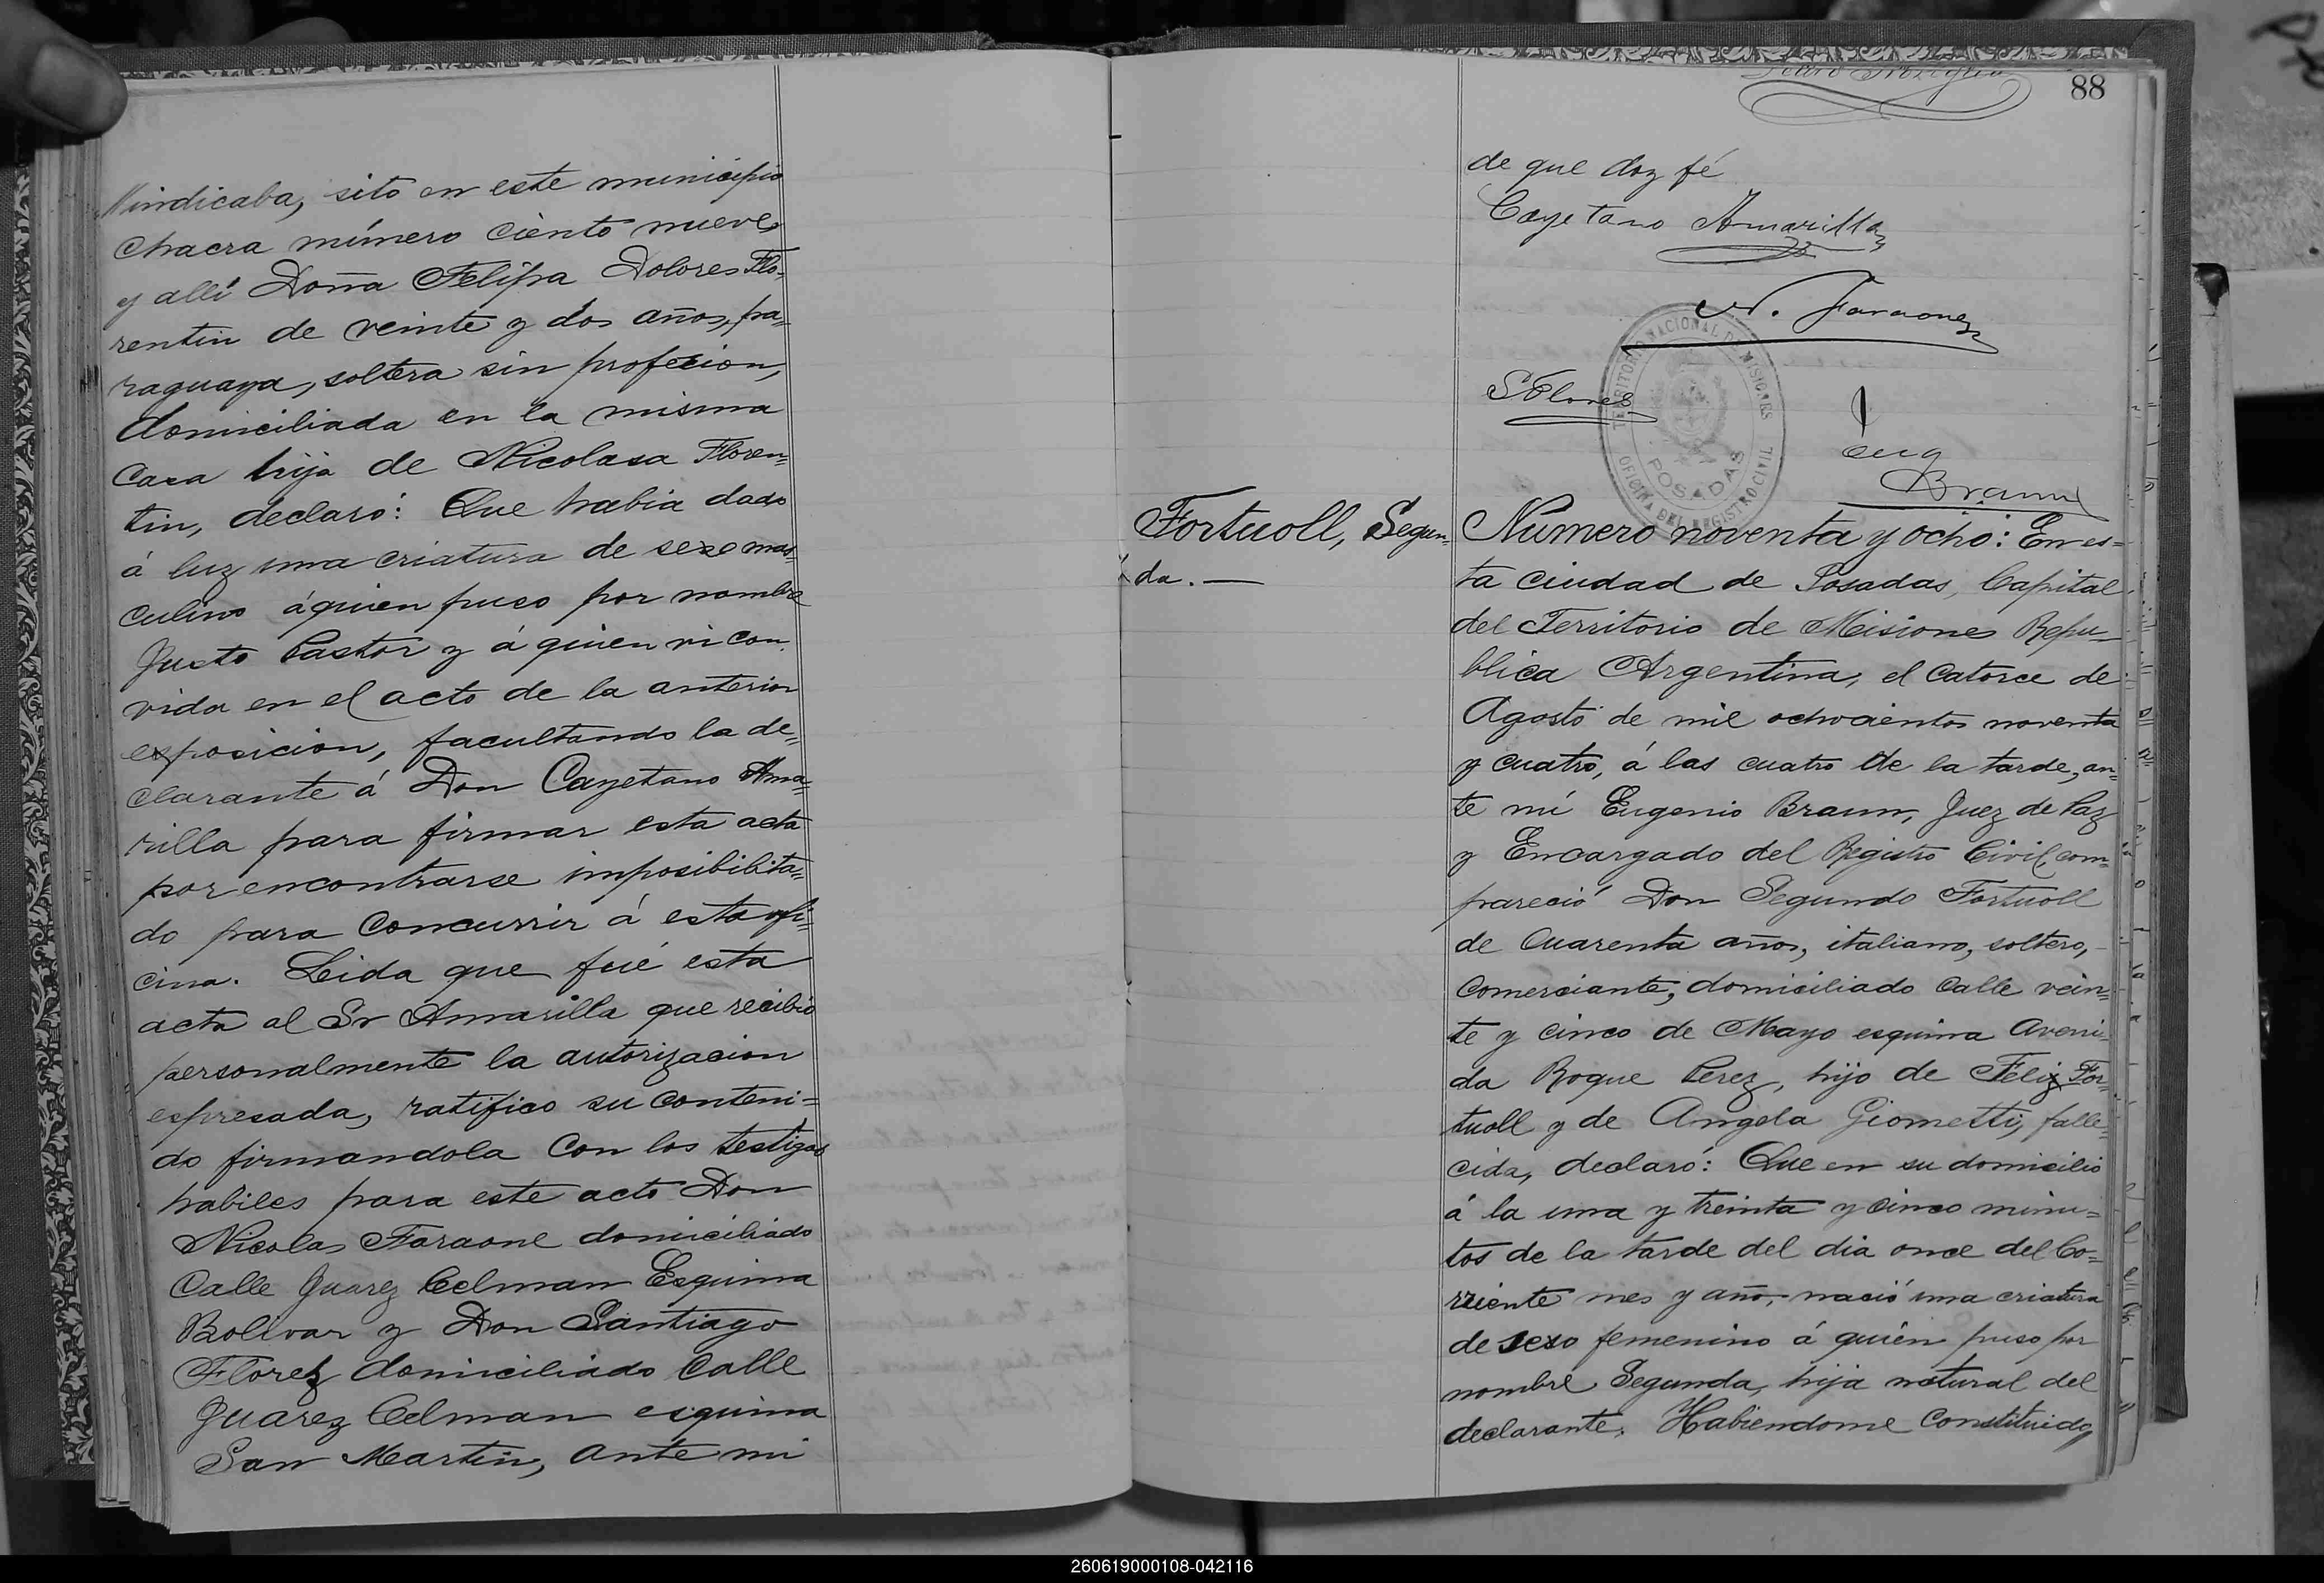 indicaba, sito en este municipio
chacra número ciento nueve,
y allí Doña Felipa Dolores Flo=
rentin de veinte y dos años, pa=
raguaya, soltera sin profesion,
domiciliada en la misma
casa hija de Nicolasa Floren=
tin, declaró: Que habia dado
á luz una criatura de sexo mas=
culino á quien puso por nombre
Justo Pastor y á quien vi con
vida en el acto de la anterior
exposicion, facultando la de=
clarante á Don Cayetano Ama=
rilla para firmar esta acta
por encontrarse imposibilita=
do para concurrir á esta ofi=
cina. Leida que fué esta
acta al Sr Amarilla que recibió
personalmente la autorizacion
espresada, ratifico su conteni=
do firmandola con los testigos
habiles para este acto Don
Nicolas Faraone domiciliado
Calle Juarez Celman Esquina
Bolivar y Don Santiago
Florez domiciliado calle
Juarez Celman esquina
San Martin, ante mi
88
de que doy fé
Cayetano Amarilla
N. Faraone
S Flores
TERRITORIO NACIONAL DE MISIONES
POSADAS
OFICINA DEL REGISTRO CIVIL
Eug
Braun
Fortuoll, Segun=
da. —
Número noventa y ocho: En es=
ta ciudad de Posadas, Capital
del Territorio de Misiones Repu=
blica Argentina, el catorce de
Agosto de mil ochocientos noventa
y cuatro, á las cuatro de la tarde, an=
te mí Eugenio Braun, Juez de Paz
y Encargado del Registro Civil, com=
pareció Don Segundo Fortuoll
de cuarenta años, italiano, soltero,
comerciante, domiciliado calle vein=
te y cinco de Mayo esquina Aveni=
da Roque Perez, hijo de Feliz For=
tuoll y de Angela Giometti, falle=
cida, declaró: Que en su domicilio
á la una y treinta y cinco minu=
tos de la tarde del dia once del Co=
rriente mes y año, nació una criatura
de sexo femenino á quién puso por
nombre Segunda, hija natural del
declarante. Habiendome constituido,
260619000108-042116